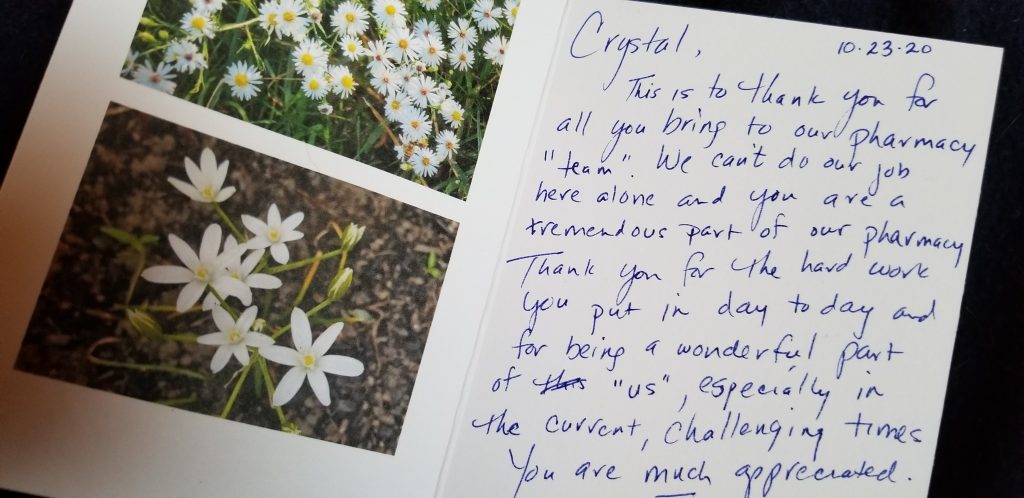 Crystal, 10.23.20
This is to thank you for
all you bring to our pharmacy
"team". We can't do our job
here alone and you are a
tremendous part of our pharmacy
Thank you for the hard work
you put in day to day and
for being a wonderful part
of this "us", especially in
the current, challenging times
You are much appreciated.